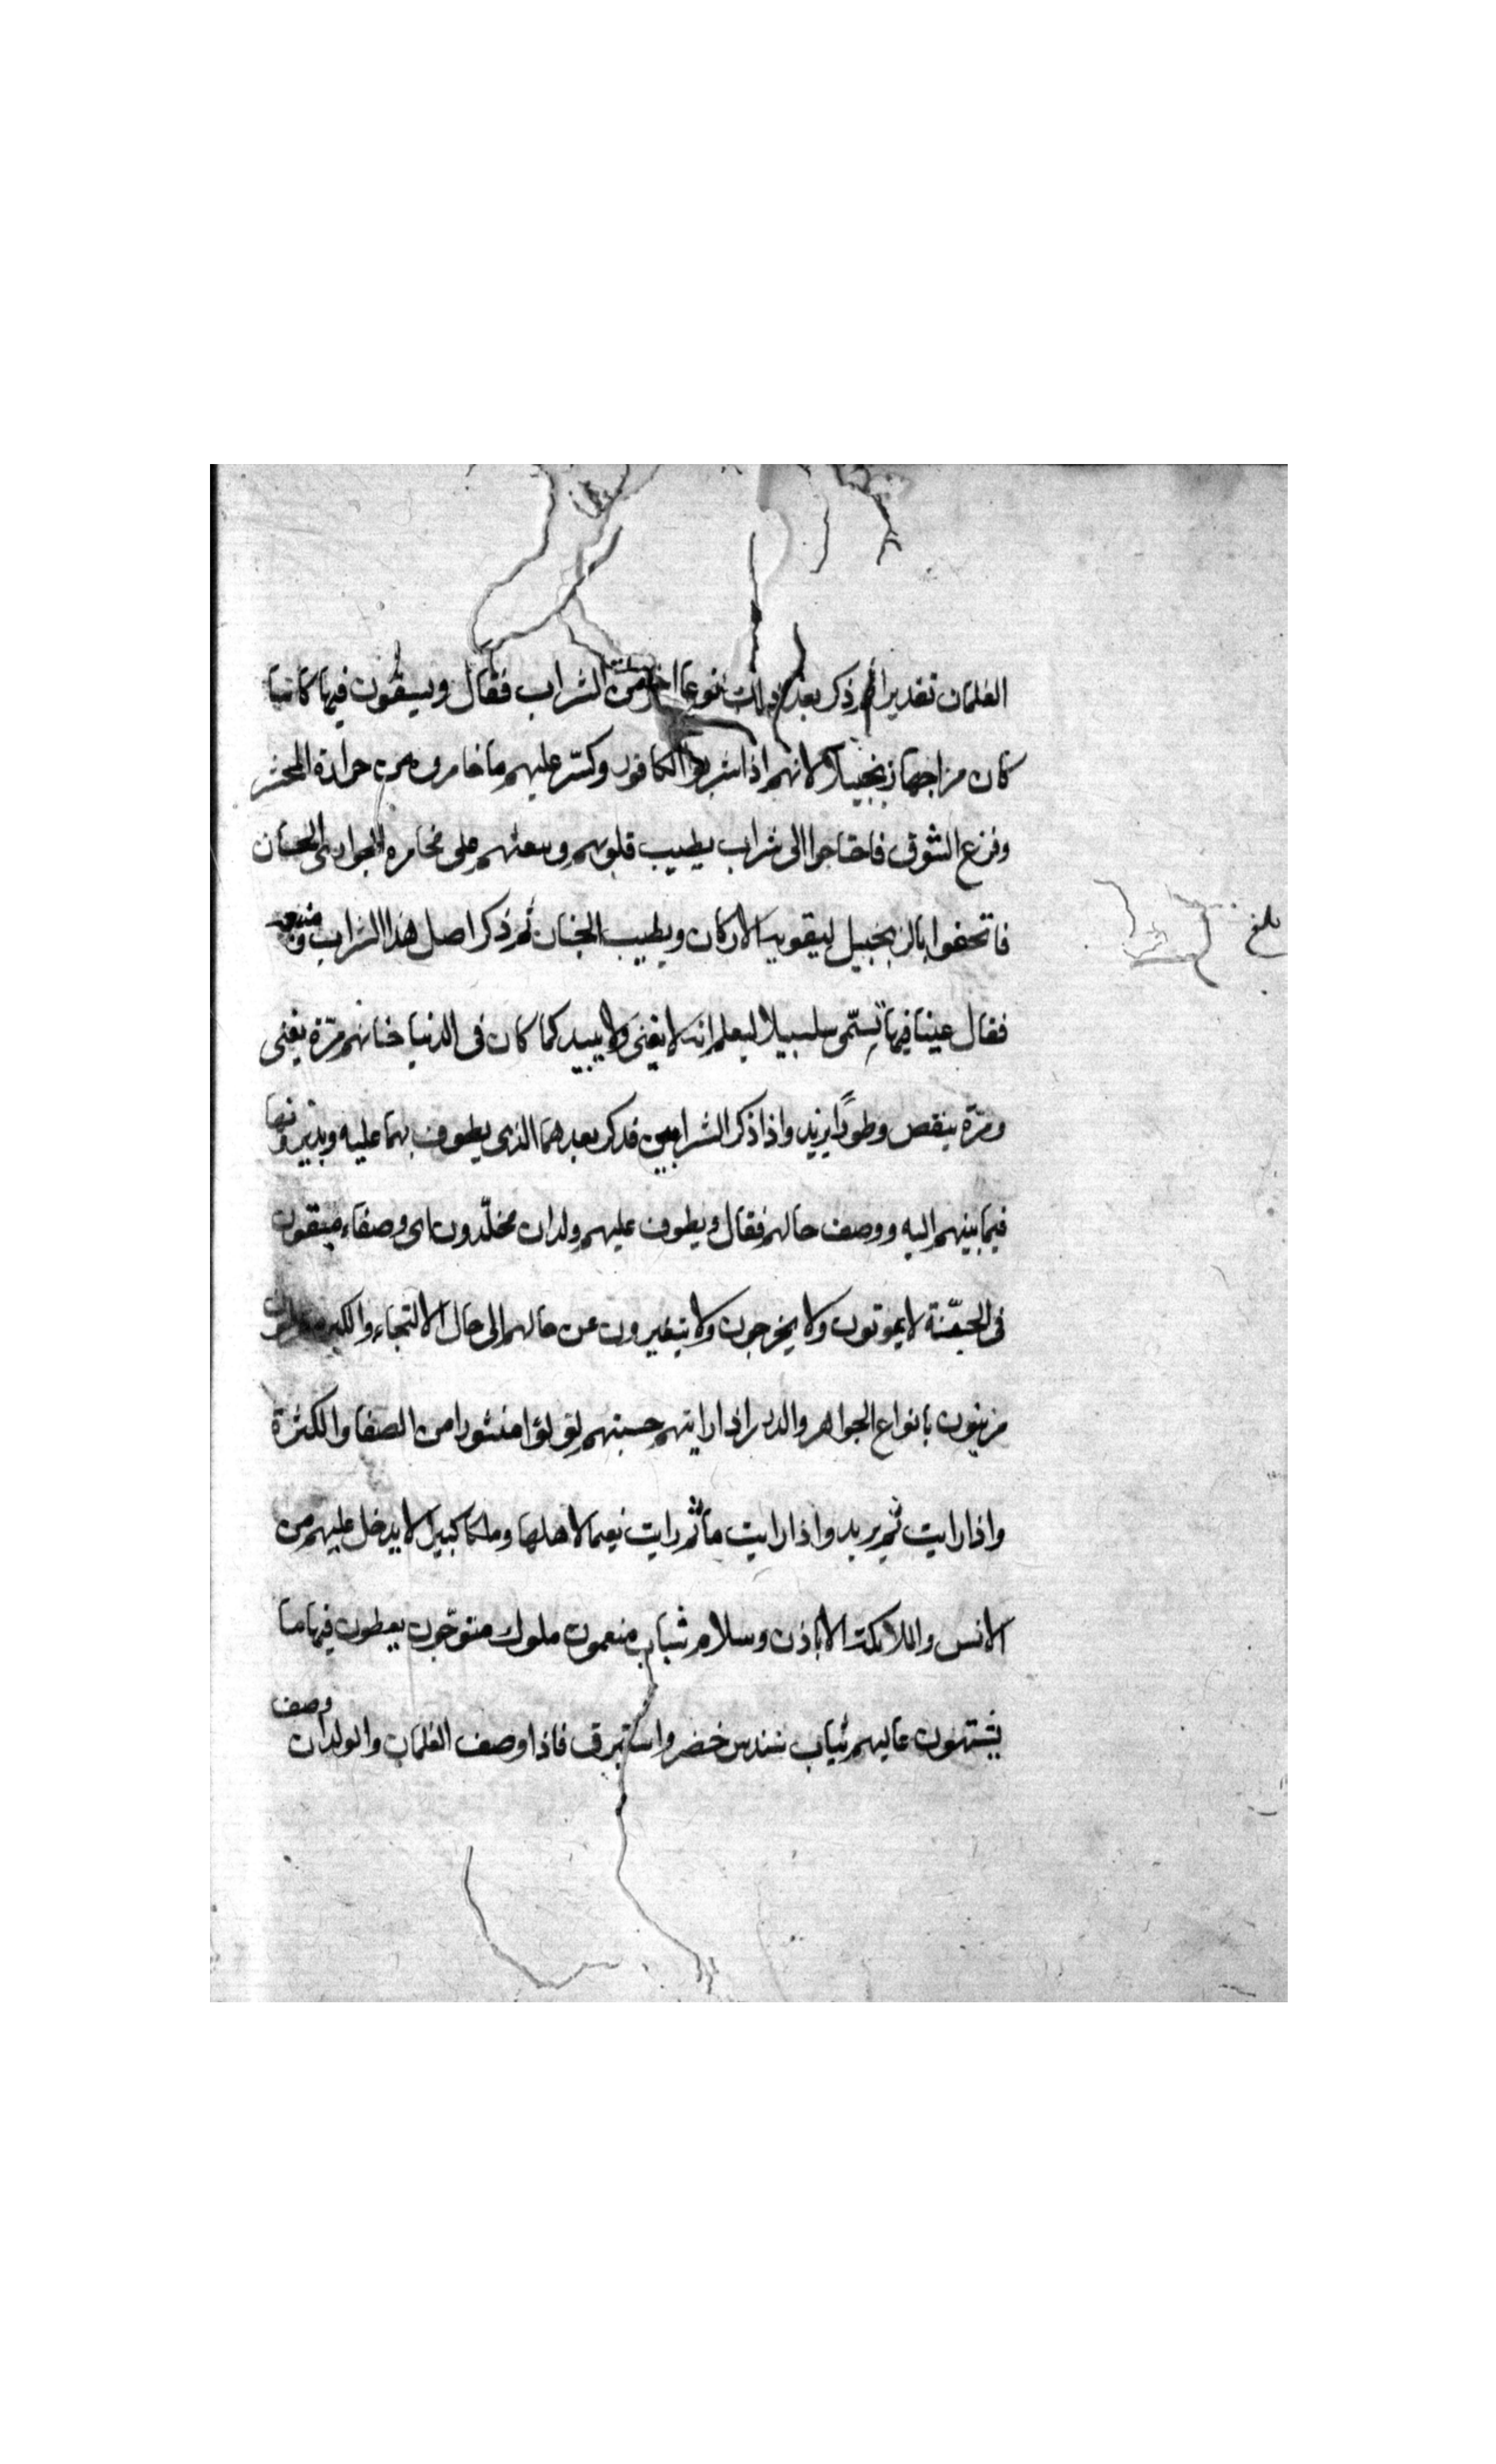 الغلمان تقديرا ثم ذكر بعد ذلك نوعا اخر من الشراب فقال ويسقون فيها كاسا
كان مزاجها زنجبيلا لانهم اذا شربوا الكافور وكسر عليهم ما خامرهم من حرارة المحشر
وفزع الشوق فاحتاجوا الى شراب يطيب قلوبهم ويبعثهم على مخامرة الجوارى الحسان
فاتحفوا بالزنجبيل ليقويه الاركان ويطيب الجنان ثم ذكر اصل هذا الشراب ومنبعه
فقال عينا فيها تسمى سلسبيلا ليعلم انه لا يفنى ولا يبيد كما كان فى الدنيا مرة يفنى
ومرة ينقص وطورًا يزيد واذا ذكر الشرابين فذكر بعدهما الذى يطوف بهما عليه ويديرونها
فيما بينهم اليه ووصف حالهم فقال ويطوف عليهم ولدان مخلّدون اى وصفاء مبقون
فى الجنّة لا يموتون ولا يخرجون ولا يتغيرون عن حالهم الى حال الالتجاء والكبر
مزينون بانواع الجواهر والدرر اذا رايتهم حسبتهم لؤلؤا منثورا من الصفا والكثرة
واذا رايت ثم يريد واذا رايت ما ثم رايت نعيما لاهلها وملكا كبيرا لا يدخل عليهم من
الانس والملائكة الا باذن وسلام شباب منعمون ملوك متوّجون يعطون فيها ما
يشتهون عاليهم ثياب سندس خضر واستبرق فاذا وصف الغلمان والولدان وصف
بلغ